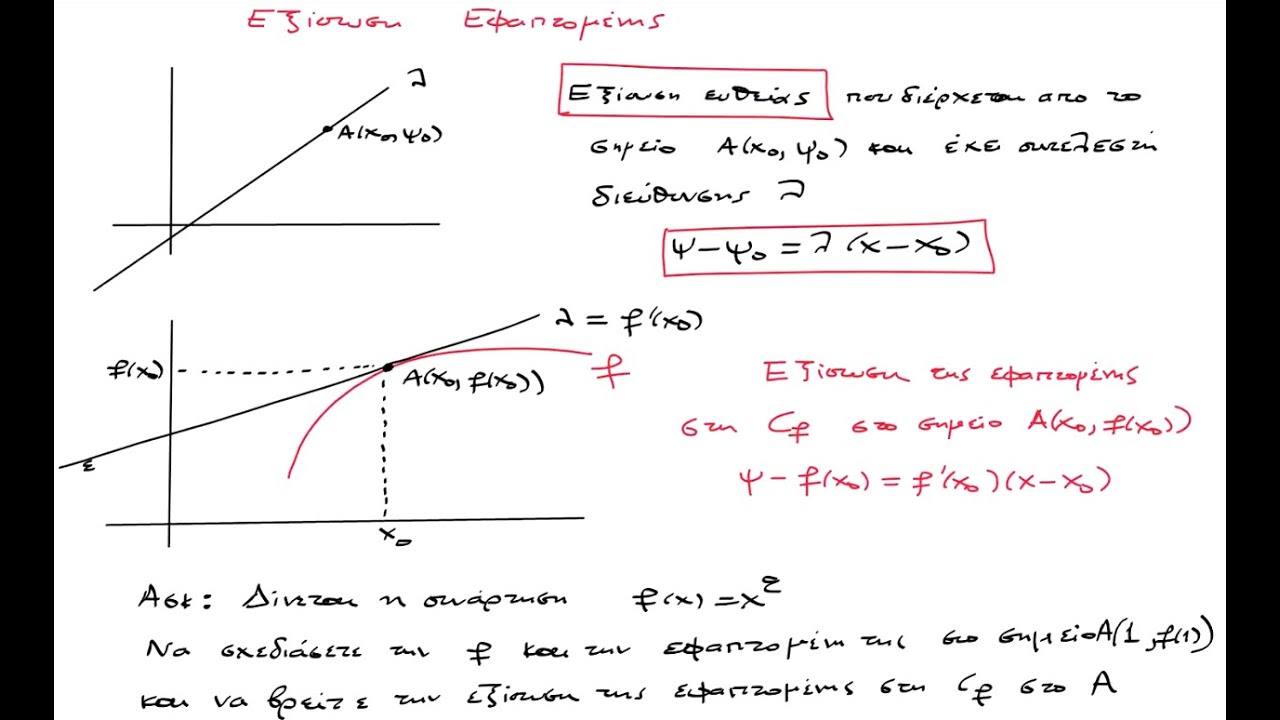 Εξίσωση Εφαπτομένης
λ
A(x₀, ψ₀)
Εξίσωση ευθείας που διέρχεται απο το
σημείο A(x₀, ψ₀) και έχει συντελεστή
διεύθυνσης λ
ψ-ψ₀ = λ (x-x₀)
λ = f'(x₀)
f(x₀)
A(x₀, f(x₀))
f
ε
x₀
Εξίσωση της εφαπτομένης
στη Cf στο σημείο A(x₀, f(x₀))
ψ - f(x₀) = f'(x₀)(x-x₀)
Ασκ: Δίνεται η συνάρτηση f(x) = x²
Να σχεδιάσετε την f και την εφαπτομένη της στο σημείο A(1, f(1))
και να βρείτε την εξίσωση της εφαπτομένης στη Cf στο A